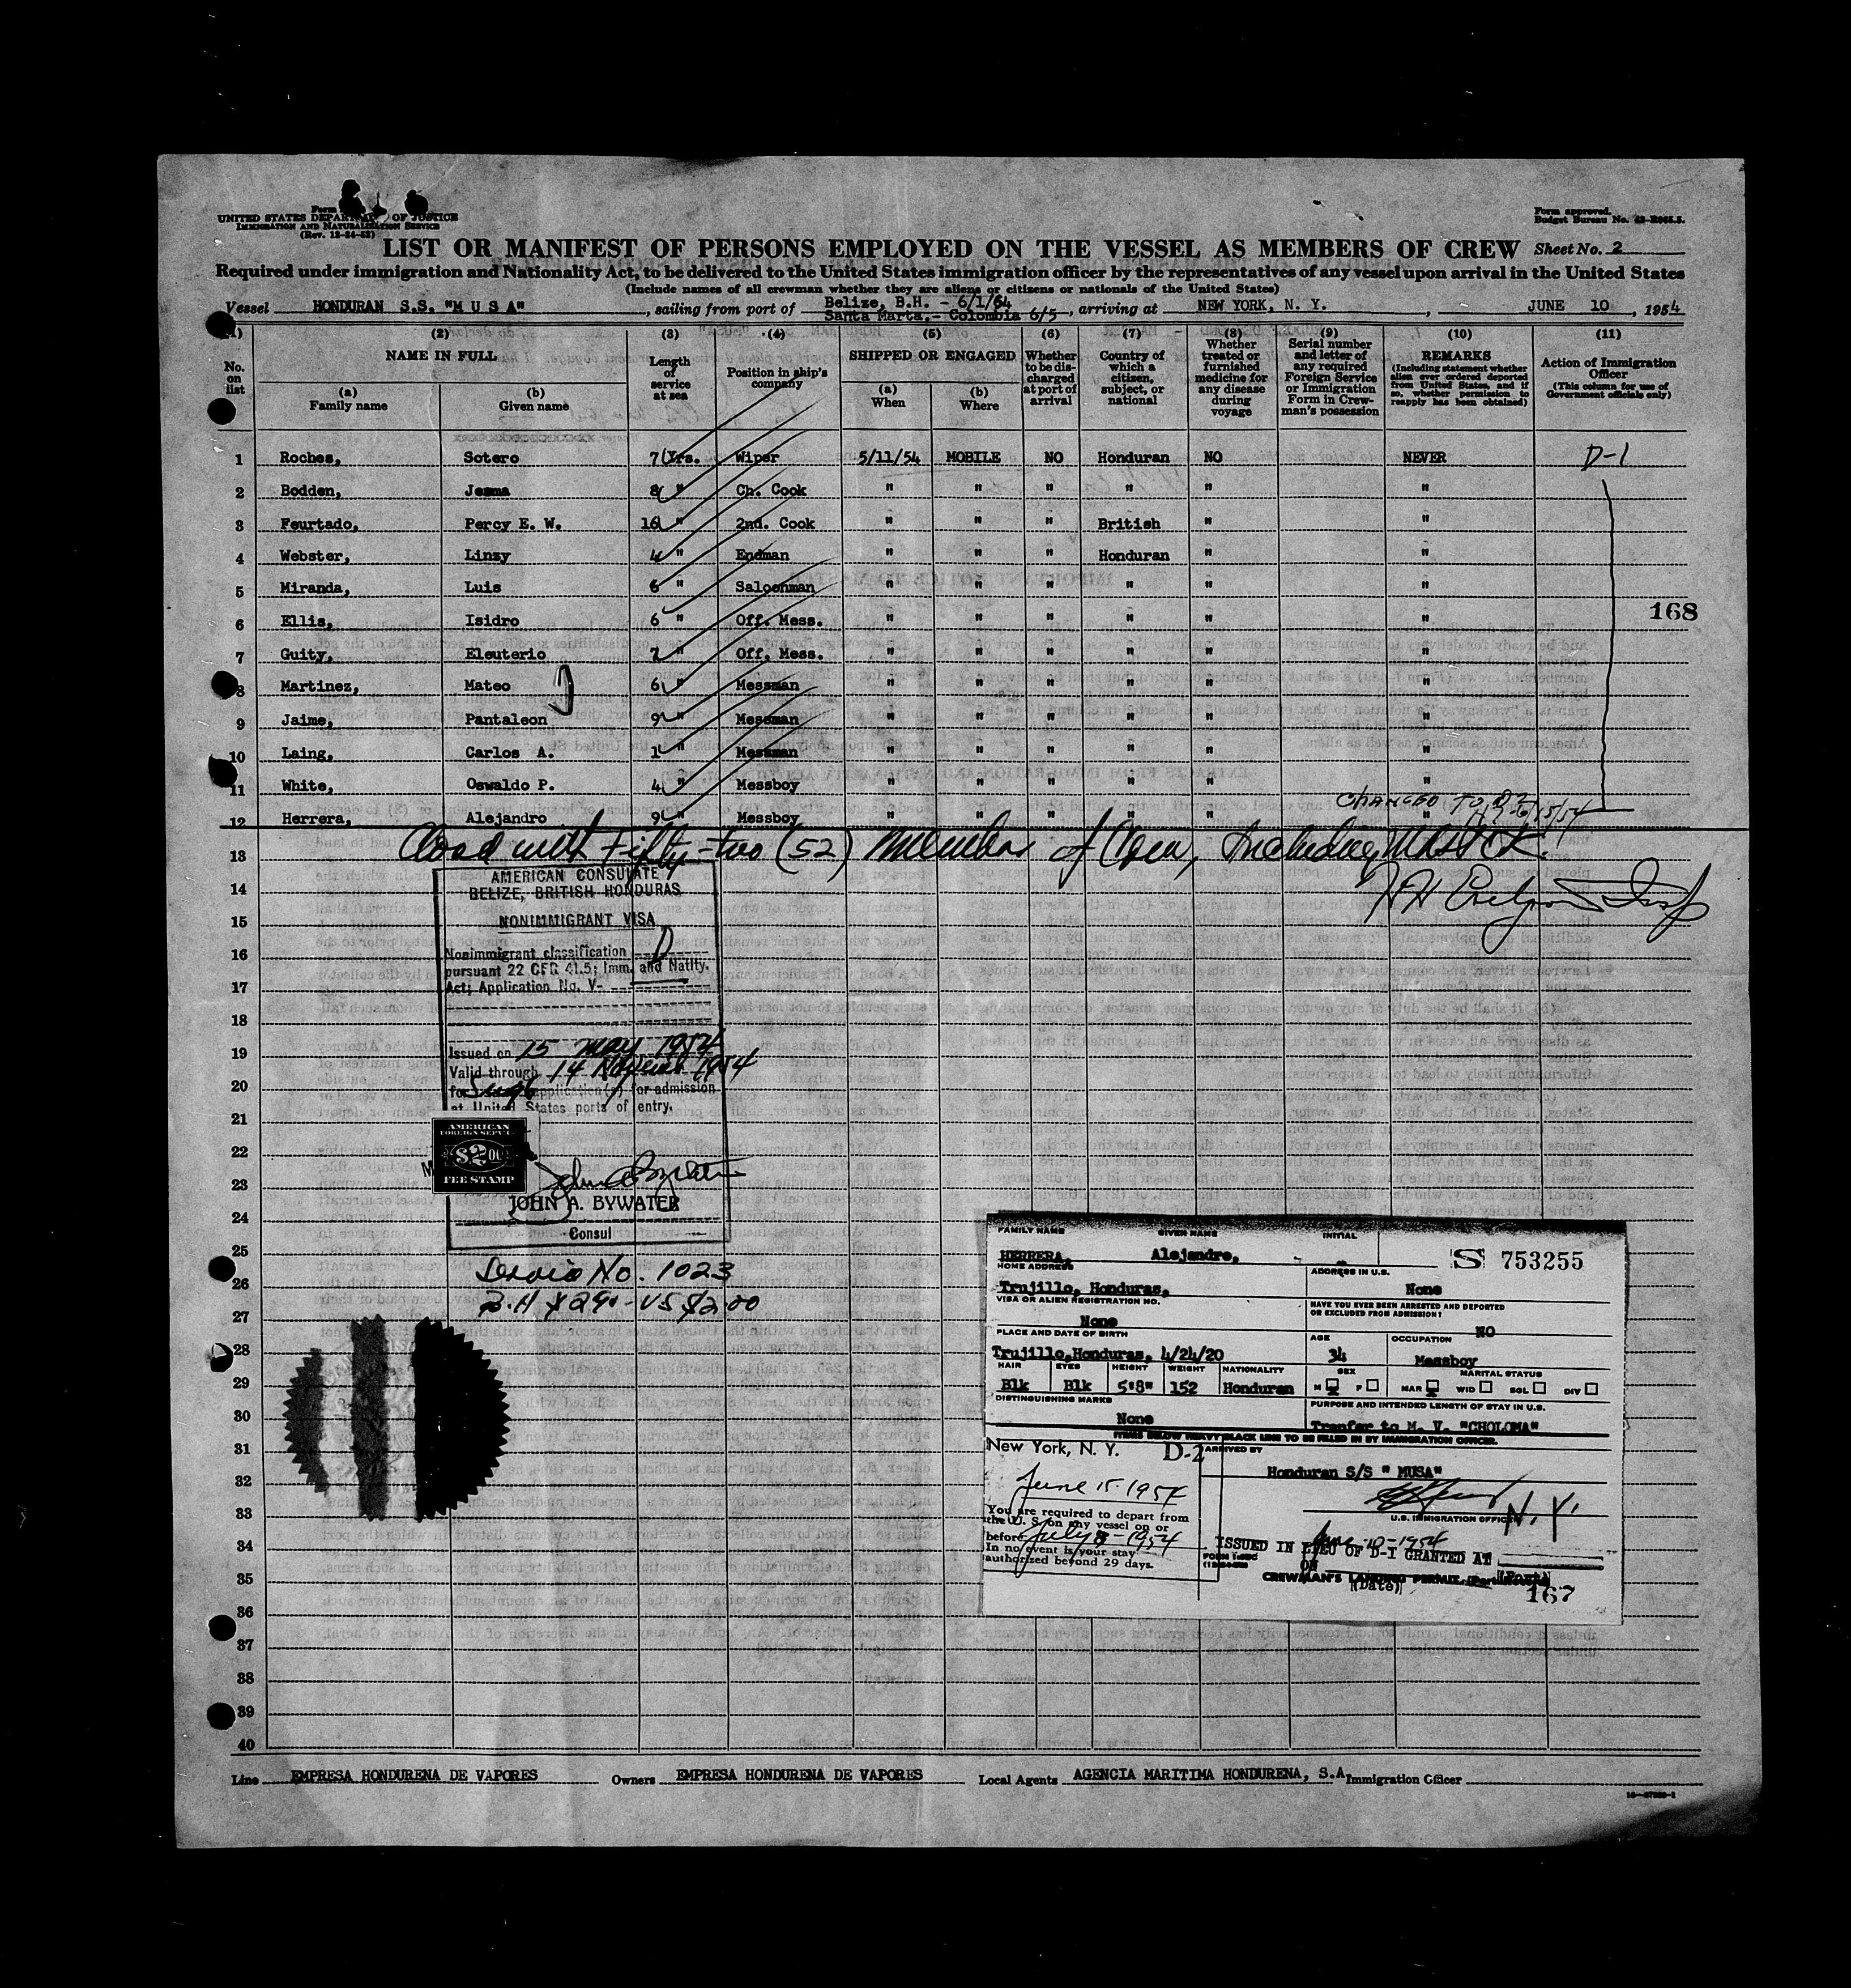 Form
UNITED STATES DEPARTMENT OF JUSTICE
IMMIGRATION AND NATURALIZATION SERVICE
(Rev. 12-24-52)
Form approved.
Budget Bureau No.
LIST OR MANIFEST OF PERSONS EMPLOYED ON THE VESSEL AS MEMBERS OF CREW Sheet No. 2
Required under immigration and Nationality Act, to be delivered to the United States immigration officer by the representatives of any vessel upon arrival in the United States
(Include names of all crewman whether they are aliens or citizens or nationals of the United States)
Vessel HONDURAN S.S. "M U S A", sailing from port of Belize, B.H. - 6/1/54 Santa Marta.- Colombia 6/5, arriving at NEW YORK, N. Y., JUNE 10, 1954
(1) (2) (3) (4) (5) (6) (7) (8) (9) (10) (11)
No. on list
NAME IN FULL
(a) Family name
(b) Given name
Length of service at sea
Position in ship's company
SHIPPED OR ENGAGED
(a) When
(b) Where
Whether to be discharged at port of arrival
Country of which a citizen, subject, or national
Whether treated or furnished medicine for any disease during voyage
Serial number and letter of any required Foreign Service or Immigration Form in Crewman's possession
REMARKS
(Including statement whether alien ever ordered deported from United States, and if so, whether permission to reapply has been obtained)
Action of Immigration Officer
(This column for use of Government officials only)
1 Roches, Sotero 7 Yrs. Wiper 5/11/54 MOBILE NO Honduran NO NEVER D-1
2 Bodden, Jesma 8 " Ch. Cook " " " " " "
3 Feurtado, Percy E. W. 16 " 2nd. Cook " " " British " "
4 Webster, Linzy 4 " Endman " " " Honduran " "
5 Miranda, Luis 6 " Saloonman " " " " " "
168
6 Ellis, Isidro 6 " Off. Mess. " " " " " "
7 Guity, Eleuterio 7 " Off. Mess. " " " " " "
8 Martinez, Mateo 6 " Messman " " " " " "
9 Jaime, Pantaleon 9 " Messman " " " " " "
10 Laing, Carlos A. 1 " Messman " " " " " "
11 White, Oswaldo P. 4 " Messboy " " " " " "
CHANGED TO D2 6/15/54
12 Herrera, Alejandro 9 " Messboy " " " " " "
Closed with Fifty-two (52) Members of Crew, Including Master.
13
14
15
16
17
18
19
20
21
22
23
24
25
26
27
28
29
30
31
32
33
34
35
36
37
38
39
40
AMERICAN CONSULATE
BELIZE, BRITISH HONDURAS
NONIMMIGRANT VISA
Nonimmigrant classification D
pursuant 22 CFR 41.5; Imm. and Natlty.
Act; Application No. V-
Issued on 15 May 1954
Valid through 14 November 1954
for Single application(s) for admission
at United States ports of entry.
AMERICAN
FOREIGN SERVICE
$2.00
FEE STAMP
JOHN A. BYWATER
Consul
Service No. 1023
B.H $2.90 - US $2.00
FAMILY NAME GIVEN NAME INITIAL
HERRERA, Alejandro, -
S 753255
HOME ADDRESS
Trujillo, Honduras,
ADDRESS IN U.S.
None
VISA OR ALIEN REGISTRATION NO.
None
HAVE YOU EVER BEEN ARRESTED AND DEPORTED
OR EXCLUDED FROM ADMISSION?
NO
PLACE AND DATE OF BIRTH
Trujillo, Honduras, 4/24/20
AGE
34
OCCUPATION
Messboy
HAIR EYES HEIGHT WEIGHT NATIONALITY SEX MARITAL STATUS
Blk Blk 5'8" 152 Honduran M F MAR WID SGL DIV
DISTINGUISHING MARKS
None
PURPOSE AND INTENDED LENGTH OF STAY IN U.S.
Tranfer to M. V. "CHOLOMA"
ITEMS BELOW HEAVY BLACK LINE TO BE FILLED IN BY IMMIGRATION OFFICER.
New York, N. Y. D-2
June 15-1954
You are required to depart from
the U. S. on any vessel on or
before July 8-1954
In no event is your stay
authorized beyond 29 days.
ARRIVED BY
Honduran S/S " MUSA"
U.S. IMMIGRATION OFFICER
N.Y.
June-10-1954
ISSUED IN LIEU OF D-I GRANTED AT
ON
(Port)
CREWMAN'S LANDING PERMIT
(Date)
167
Line EMPRESA HONDURENA DE VAPORES Owners EMPRESA HONDURENA DE VAPORES Local Agents AGENCIA MARITIMA HONDURENA, S.A. Immigration Officer